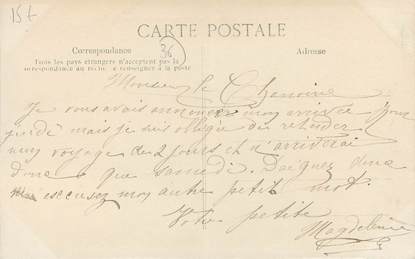 15 f
CARTE POSTALE
36
Correspondance
Adresse
Tous les pays étrangers n'acceptent pas la
correspondance au recto, se renseigner à la poste
Monsieur le Chanoine
Je vous avais annoncer mon arrivée pour
jeudi mais je suis obligée de retarder
mon voyage de 2 jours et n'arriverai
donc que samedi. Daignez donc
excusez mon autre petit mot.
Votre petite
Magdeleine